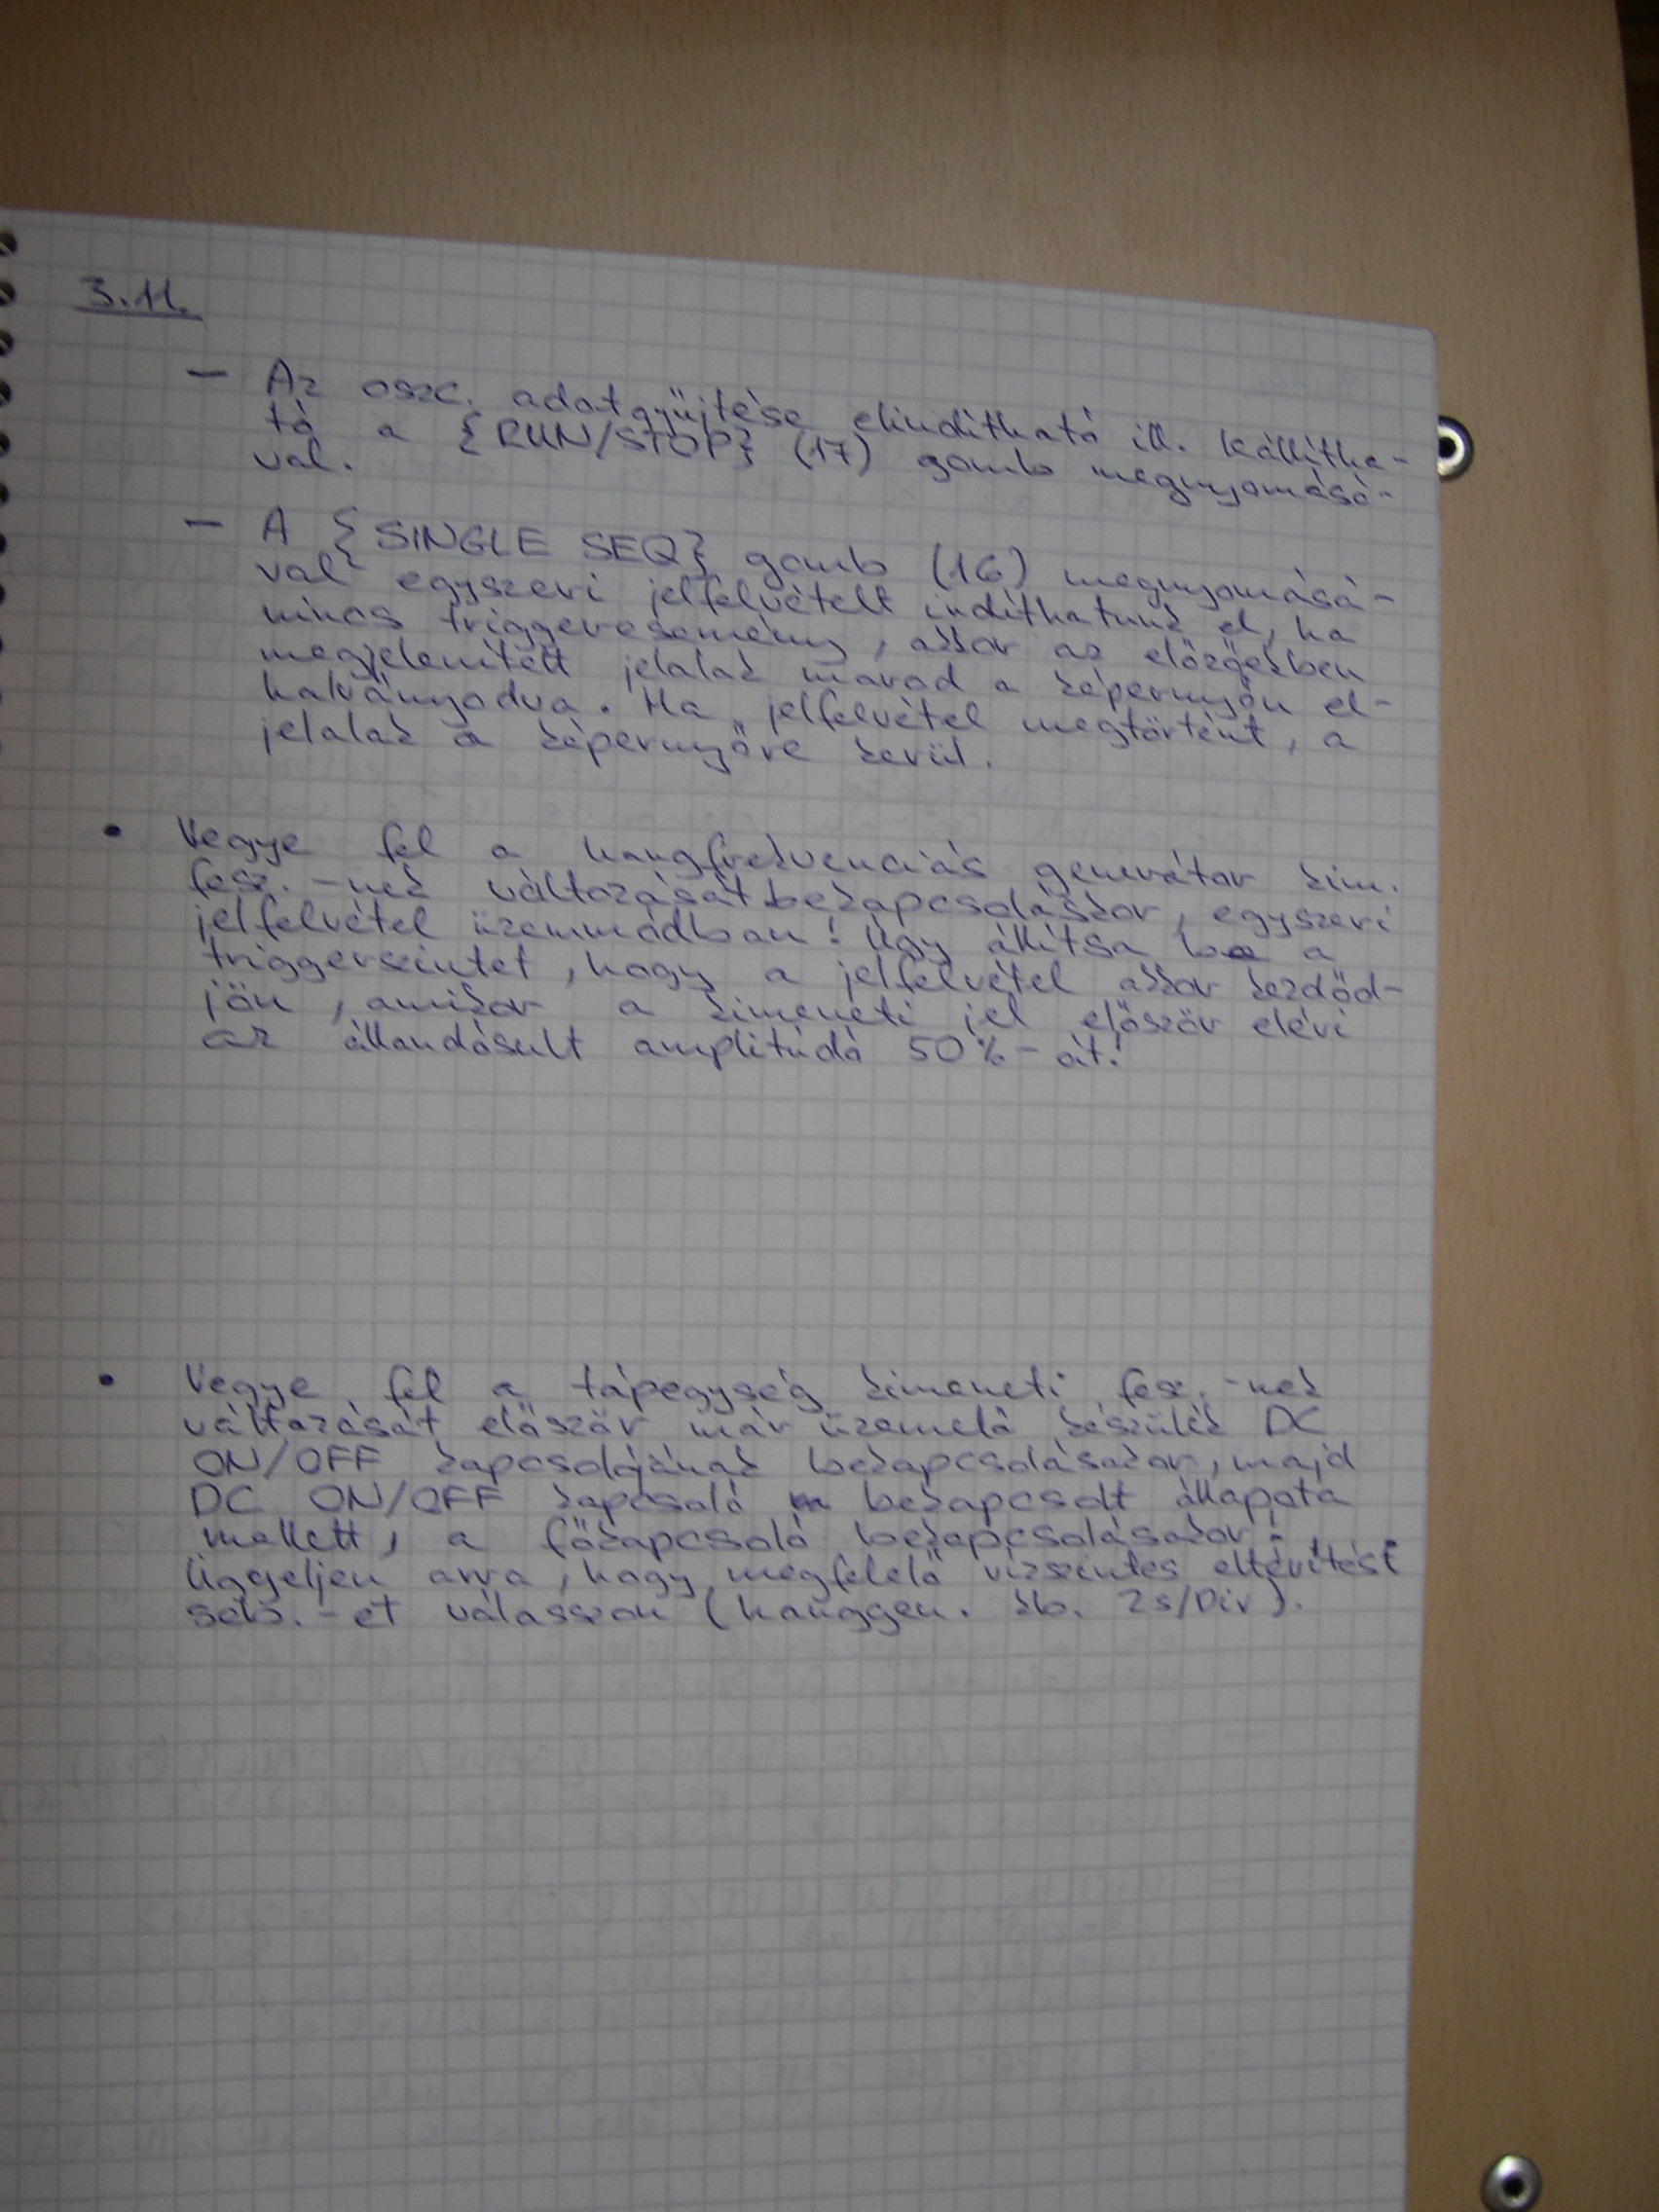 3.11.
– Az oszc. adatgyűjtése elindítható ill. kállítha-
tó a {RUN/STOP} (17) gomb megnyomásá-
val.
– A {SINGLE SEQ} gomb (16) megnyomásá-
val egyszeri jelfelvételt indíthatunk el, ha
nincs triggeresemény, akkor az előzőekben
megjelenített jelalak marad a képernyőn el-
halványodva. Ha jelfelvétel megtörtént, a
jelalak a képernyőre kerül.
• Vegye fel a hangfrekvenciás generátor kim.
fesz.-nek változását bekapcsoláskor, egyszeri
jelfelvétel üzemmódban! Úgy állítsa be a
triggerszintet, hogy a jelfelvétel akkor kezdőd-
jön, amikor a kimeneti jel először eléri
az állandósult amplitúdó 50%-át!
• Vegye fel a tápegység kimeneti fesz.-nek
változását először már üzemelő készülék DC
ON/OFF kapcsolójának bekapcsolásakor, majd
DC ON/OFF kapcsoló bekapcsolt állapota
mellett, a főkapcsoló bekapcsolásakor!
Ügyeljen arra, hogy megfelelő vízszintes eltérítési
seb.-et válasszon (hanggen. kb. 2s/Div).